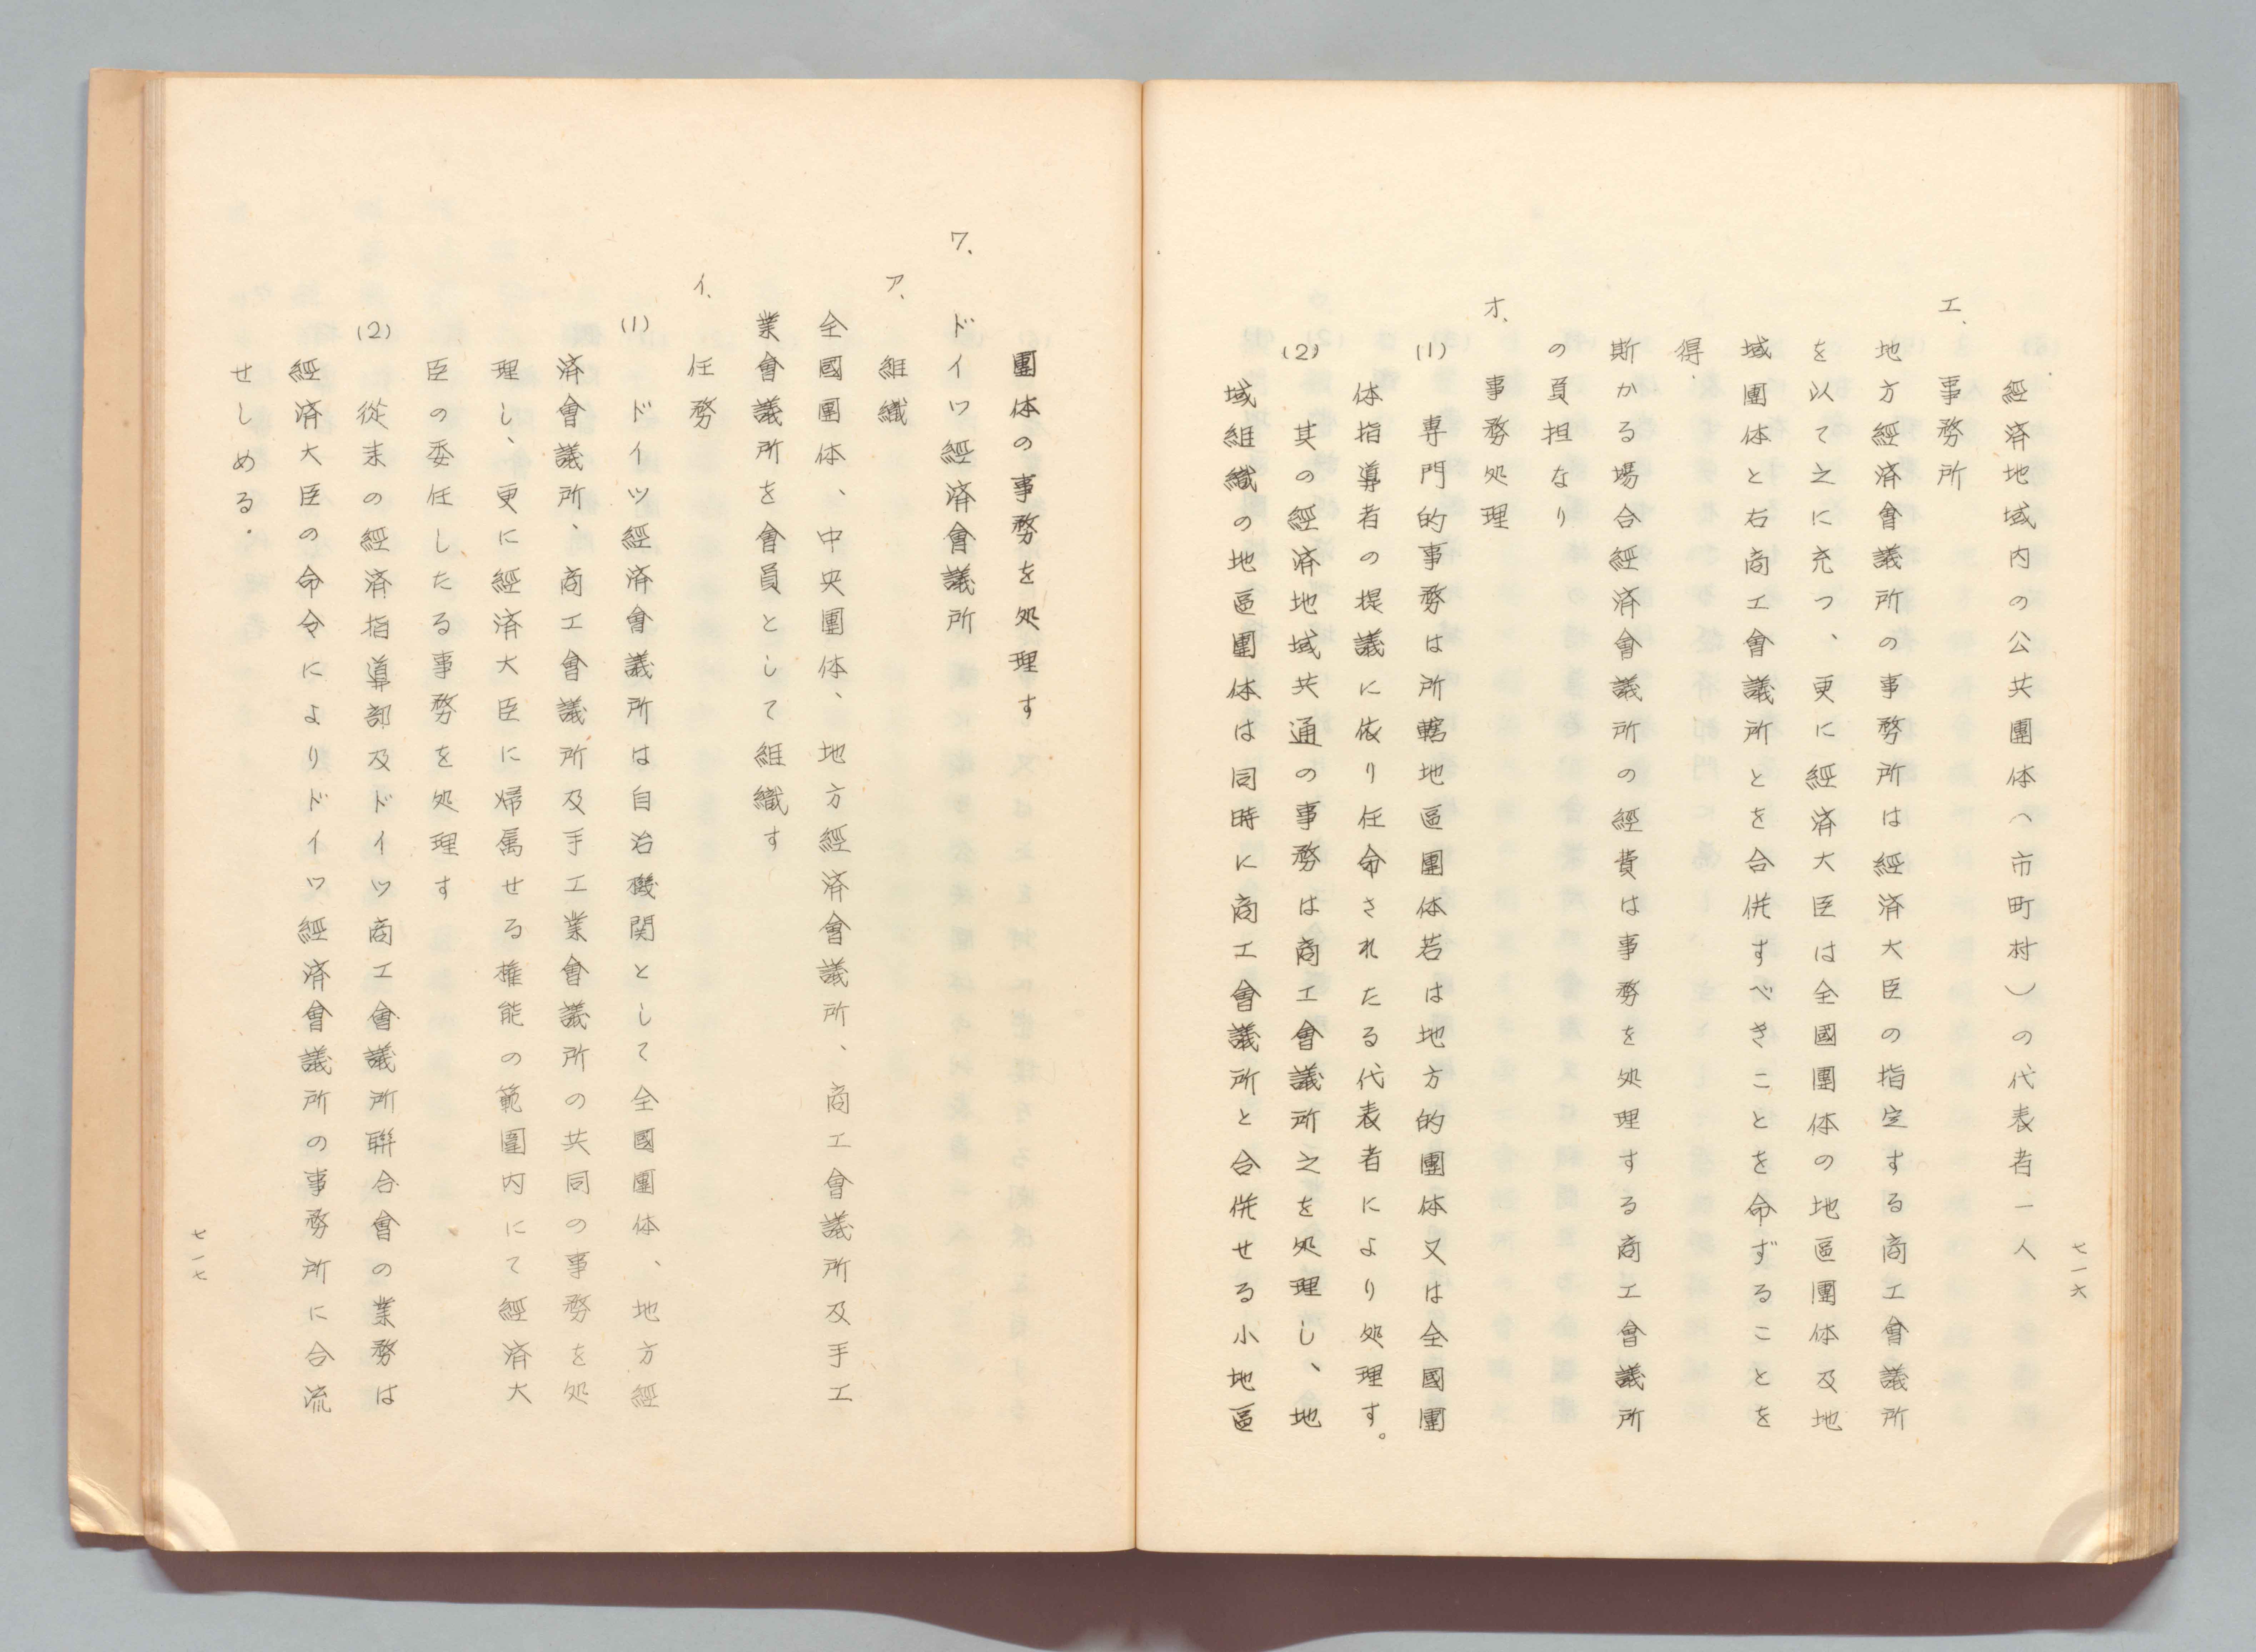 經済地域内の公共團体（市町村）の代表者一人
エ、事務所
地方經済會議所の事務所は經済大臣の指定する商工會議所
を以て之に充つ、更に經済大臣は全國團体の地區團体及地
域團体と右商工會議所とを合併すべきことを命ずることを
得．
斯かる場合經済會議所の經費は事務を処理する商工會議所
の負担なり
オ、事務処理
(1) 専門的事務は所轄地區團体若は地方的團体又は全國團
体指導者の提議に依り任命されたる代表者により処理す。
(2) 其の經済地域共通の事務は商工會議所之を処理し、地
域組織の地區團体は同時に商工會議所と合併せる小地區
七一六
團体の事務を処理す
7、ドイツ經済會議所
ア、組織
全國團体、中央團体、地方經済會議所、商工會議所及手工
業會議所を會員として組織す
イ、任務
(1) ドイツ經済會議所は自治機関として全國團体、地方經
済會議所、商工會議所及手工業會議所の共同の事務を処
理し、更に經済大臣に帰属せる権能の範圍内にて經済大
臣の委任したる事務を処理す
(2) 從来の經済指導部及ドイツ商工會議所聯合會の業務は
經済大臣の命令によりドイツ經済會議所の事務所に合流
せしめる．
七一七